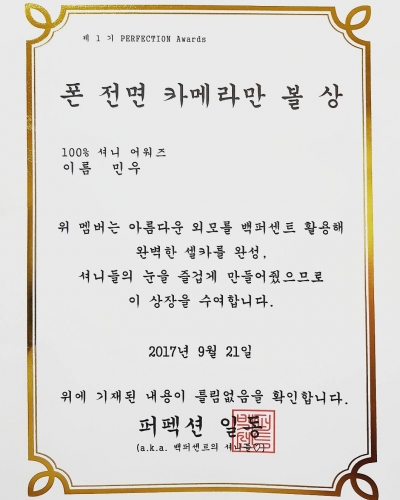 제 1 기 PERFECTION Awards
폰 전면 카메라만 볼 상
100% 셔니 어워즈
이름 민우
위 멤버는 아름다운 외모를 백퍼센트 활용해
완벽한 셀카를 완성,
셔니들의 눈을 즐겁게 만들어줬으므로
이 상장을 수여합니다.
2017년 9월 21일
위에 기재된 내용이 틀림없음을 확인합니다.
퍼펙션 일동
(a.k.a. 백퍼센트의 셔니들♡)